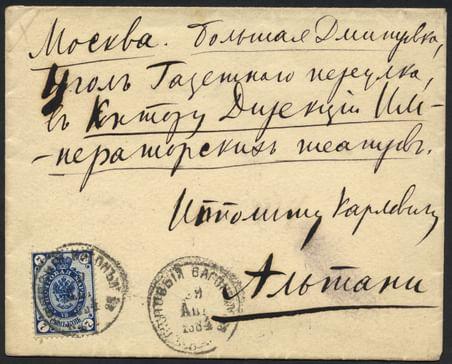 Москва. Большая Дмитровка,
Уголъ Газетнаго переулка,
въ Контору Дирекціи Им-
-ператорскихъ театровъ.
Ипполиту Карловичу
Альтани
ПОЧТОВЫЙ ВАГОНЪ
9
АПР
1884
7
7